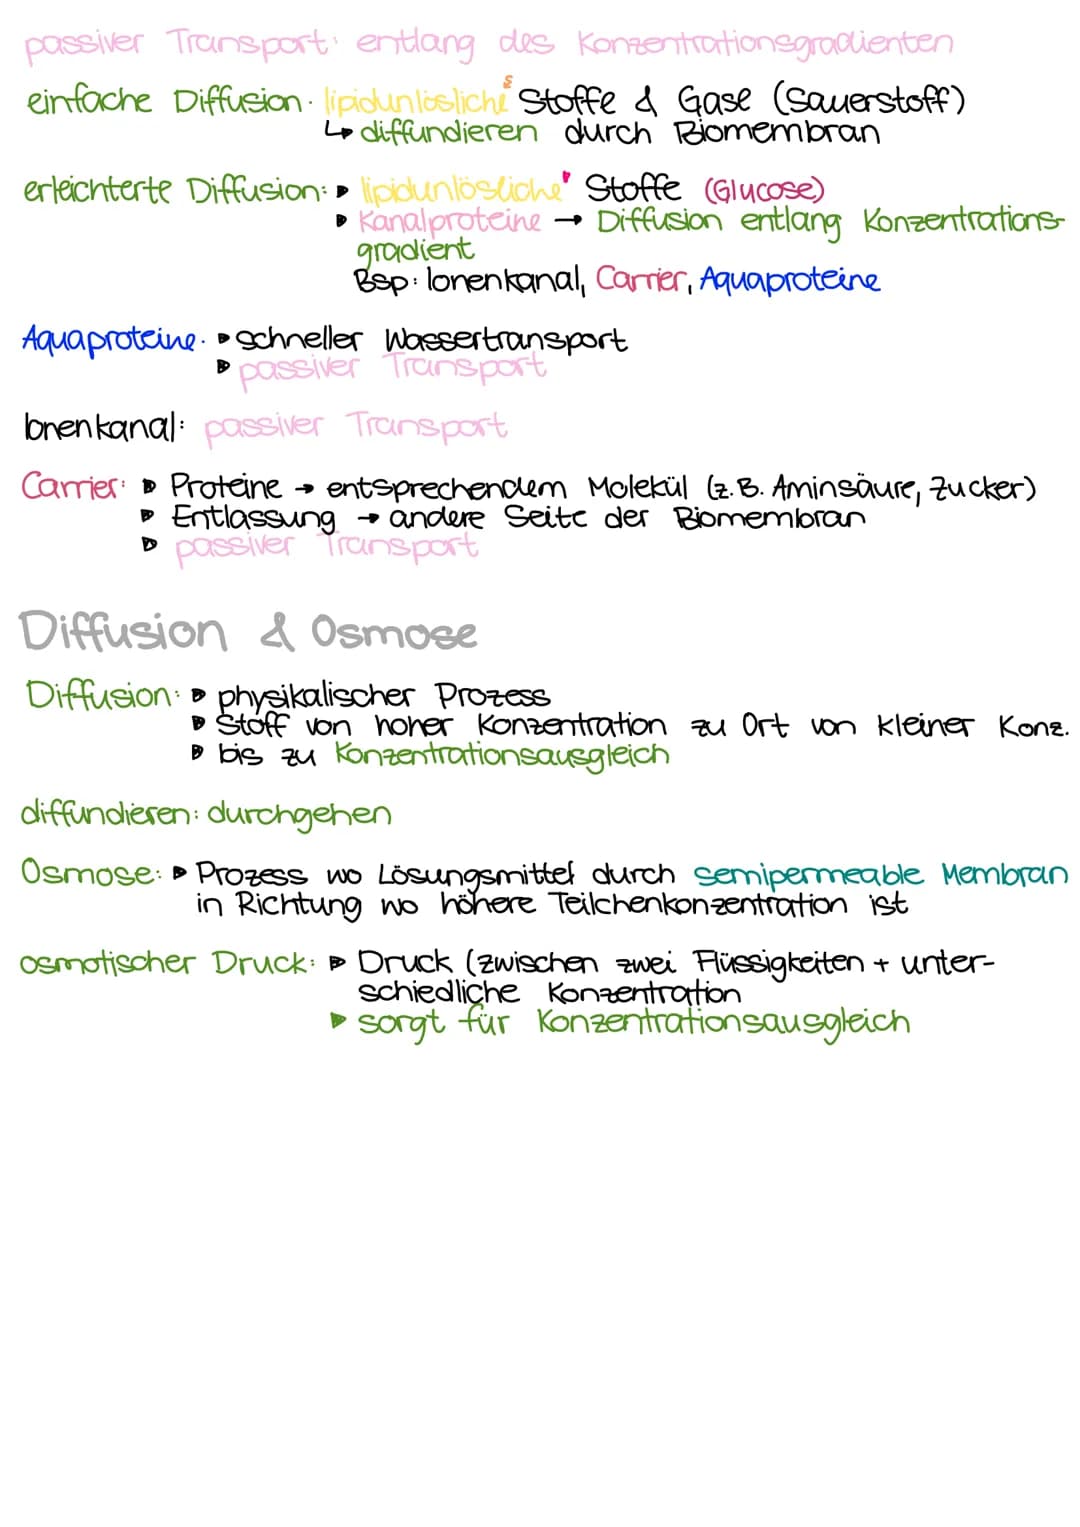 passiver Transport: entlang des Konzentrationsgradienten
einfache Diffusion: lipidunlösliche s Stoffe & Gase (Sauerstoff)
↳ diffundieren durch Biomembran
erleichterte Diffusion: ▶ lipidunlösliche Stoffe (Glucose)
▶ Kanalproteine → Diffusion entlang Konzentrations-
gradient
Bsp: Ionenkanal, Carrier, Aquaproteine
Aquaproteine: ▶ schneller Wassertransport
▶ passiver Transport
Ionenkanal: passiver Transport
Carrier: ▶ Proteine → entsprechendem Molekül (z.B. Aminsäure, Zucker)
▶ Entlassung → andere Seite der Biomembran
▶ passiver Transport
Diffusion & Osmose
Diffusion: ▶ physikalischer Prozess
▶ Stoff von hoher Konzentration zu Ort von kleiner Konz.
▶ bis zu Konzentrationsausgleich
diffundieren: durchgehen
Osmose: ▶ Prozess wo Lösungsmittel durch semipermeable Membran
in Richtung wo höhere Teilchenkonzentration ist
osmotischer Druck: ▶ Druck (zwischen zwei Flüssigkeiten + unter-
schiedliche Konzentration
▶ sorgt für Konzentrationsausgleich